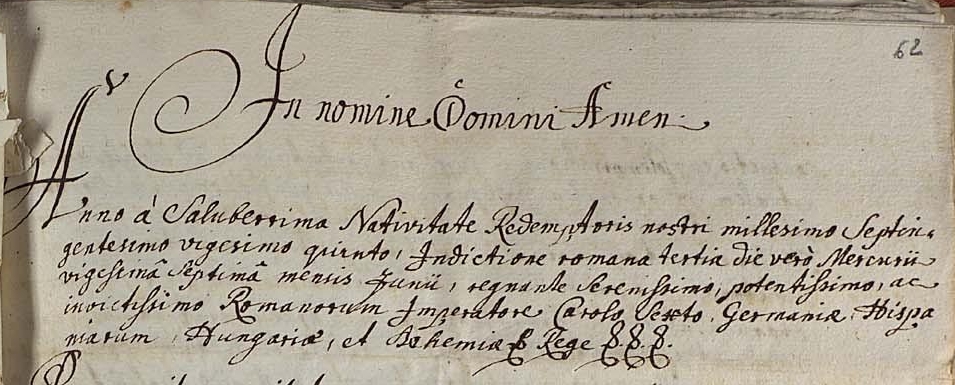 62
In nomine Domini Amen.
Anno á Saluberrima Nativitate Redemptoris nostri millesimo Septin,
gentesimo vigesimo quinto, Indictione romana tertia die verò Mercurii
vigesimâ Septimâ mensis Junii, regnante Serenissimo, potentissimo, ac
invictissimo Romanorum Imperatore Carolo Sexto, Germaniæ, Hispa
niarum, Hungariæ, et Bohemiæ Rege